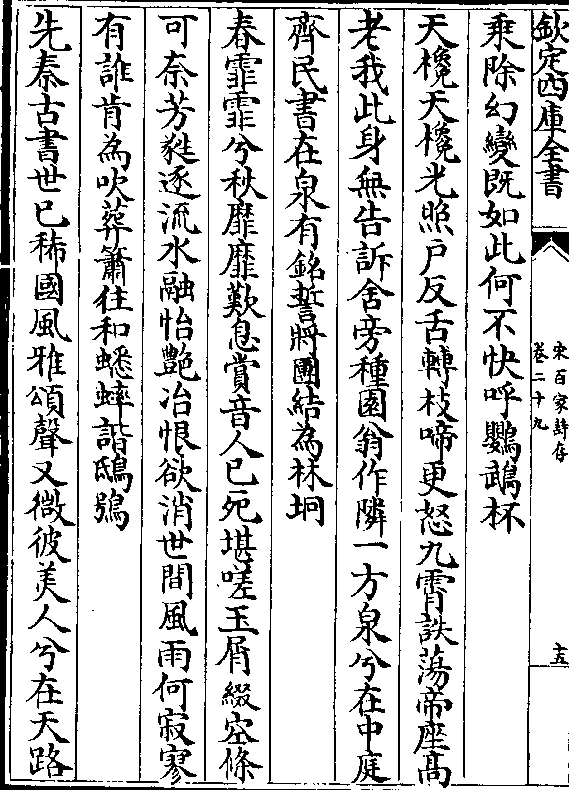 欽定四庫全書
宋百家詩存
卷二十九
十五
乘除幻變既如此何不快呼鸚鵡杯
天欃天欃光照戸反舌轉枝啼更怒九霄詄蕩帝座髙
老我此身無告訴舍旁種園翁作隣一方泉兮在中庭
齊民書在泉有銘誓將團結為林坰
春霏霏兮秋靡靡歎息賞音人已死堪嗟玉屑綴空條
可奈芳蕤逐流水融怡艶冶恨欲消世間風雨何寂寥
有誰肯為吹葬簫往和蟋蟀諧鴟鴞
先秦古書世已稀國風雅頌聲又微彼美人兮在天路